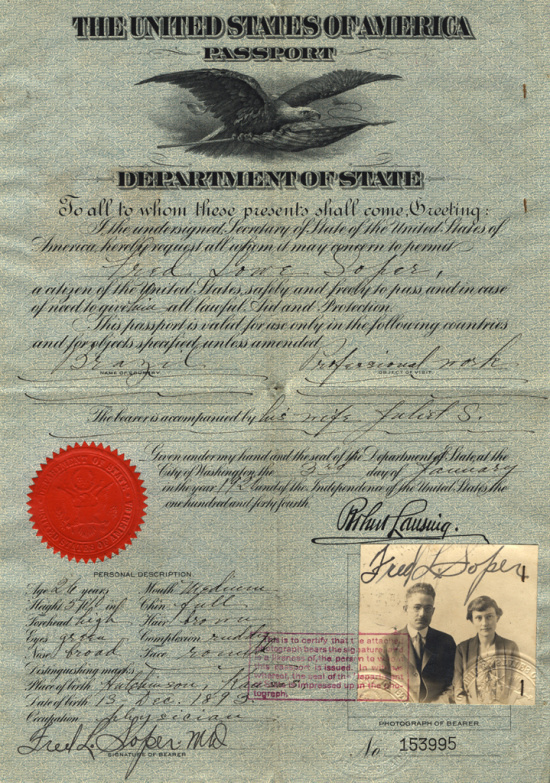 THE UNITED STATES OF AMERICA
PASSPORT
DEPARTMENT OF STATE
To all to whom these presents shall come, Greeting:
I the undersigned, Secretary of State of the United States of
America, hereby request all whom it may concern to permit
Fred Lowe Soper,
a citizen of the United States, safely and freely to pass, and in case
of need to give him all lawful Aid and Protection.
This passport is valid for use only in the following countries
and for objects specified, unless amended
Brazil Professional work
NAME OF COUNTRY. OBJECT OF VISIT.
The bearer is accompanied by his wife Juliet S.
Given under my hand and the seal of the Department of State, at the
City of Washington, the 3rd day of January
in the year 1920 and of the Independence of the United States, the
one hundred and forty fourth.
Robert Lansing.
PERSONAL DESCRIPTION
Age 26 years Mouth Medium
Height Chin full
Forehead high Hair brown
Eyes green Complexion ruddy
Nose broad Face round
Distinguishing marks
Place of birth Hutchinson, Kansas
Date of birth 13 Dec. 1893
Occupation physician
Fred L. Soper M.D.
SIGNATURE OF BEARER
This is to certify that the attached
photograph bears the signature and
is a likeness of the person to whom
this passport is issued. In witness
whereof, the seal of the Department
is impressed upon the pho-
tograph.
Fred L Soper
PHOTOGRAPH OF BEARER
No 153995